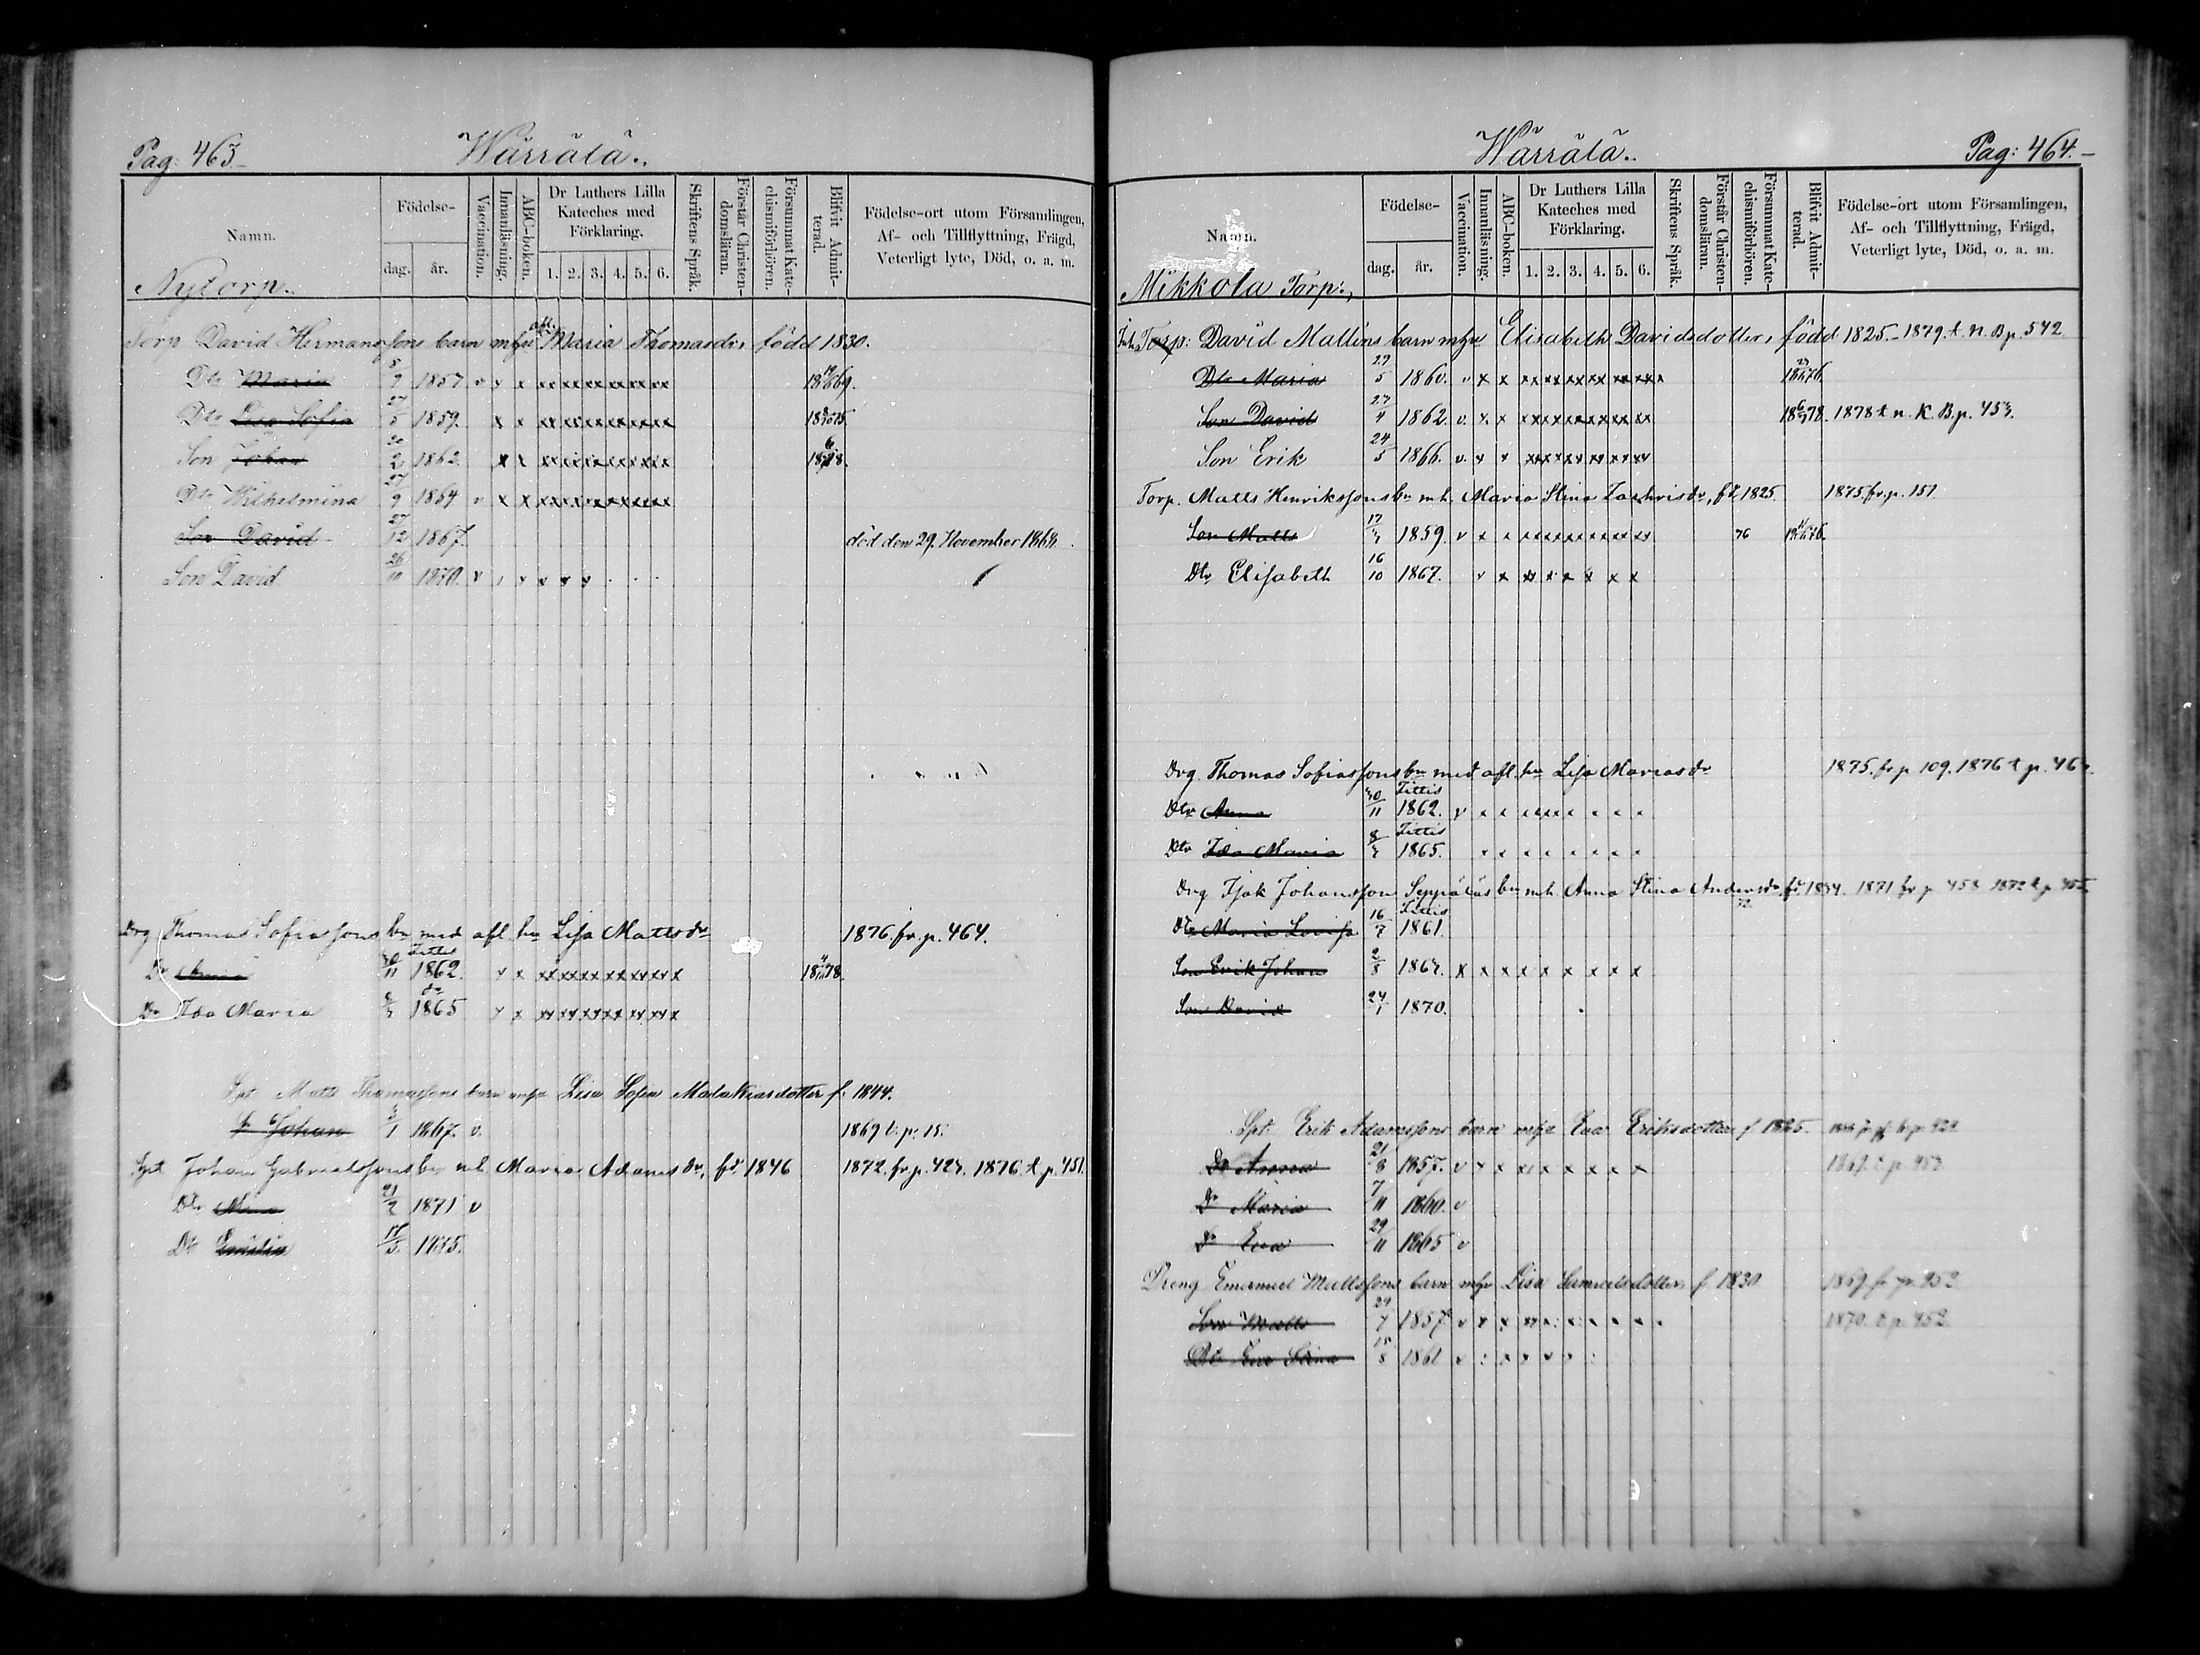 Pag: 463.
Wärrälä.
Namn.
Födelse-
dag. år.
Vaccination.
Innanläsning.
ABC-boken.
Dr Luthers Lilla Kateches med Förklaring.
1. 2. 3. 4. 5. 6.
Skriftens Språk.
Förstår Christendomsläran.
Försummat Katechismiförhören.
Blifvit Admitterad.
Födelse-ort utom Församlingen, Af- och Tillflyttning, Frägd, Veterligt lyte, Död, o. a. m.
Nytorp.
Torp. David Hermanssons barn mhu afl. Maria Thomasdr, född 1830.
Dtr Maria 1857 v x x xx xx xx xx xx xx
Dtr Lisa Sofia 27/5 1859. x x xx xx xx xx xx xx
Son Johan 20/2 1862. x x xx xx xx xx xx xx
Dtr Wilhelmina 27/9 1864 v x x xx xx xx xx xx xx
Son David 27/12 1867. död den 29. November 1868.
Son David 26/11 1870. v x x x x x
Drg Thomas Sofiassons bn med afl. hu Lisa Mattsdr 1876 fr. p. 464.
Dr Anna 30/11 Tittis 1862. x x xx xx xx xx xx xx x
Dr Ida Maria 8/3 do 1865 x x xx xx xx xx xx xx x
Spt. Matts Thomassons barn mhu Lisa Sofia Malakiasdotter f. 1844.
S. Johan 1/1 1867. v. 1869 t. p. 15.
Spt Johan Gabrielssons bn mh. Maria Adamsdr, fd 1846 1872. fr. p. 424. 1876. t. p. 451.
Dtr 21/2 1871 v
Dtr Emilia 17/5. 1875.
Pag: 464.
Wärrälä.
Namn.
Födelse-
dag. år.
Vaccination.
Innanläsning.
ABC-boken.
Dr Luthers Lilla Kateches med Förklaring.
1. 2. 3. 4. 5. 6.
Skriftens Språk.
Förstår Christendomsläran.
Försummat Katechismiförhören.
Blifvit Admitterad.
Födelse-ort utom Församlingen, Af- och Tillflyttning, Frägd, Veterligt lyte, Död, o. a. m.
Mikkola Torp.
Torp: David Mattsons barn mhu Elisabeth Davidsdotter, född 1825. 1879. t. N. B p. 542
Dtr Maria 27/5 1860. v x x xx xx xx xx xx xx x
Son David 27/4 1862. v. x x xx xx xx xx xx xx 1878 t. n. K. B. p. 453.
Son Erik 24/5 1866. v. x x xx xx xx xx xx xx
Torp. Matts Henrikssons bn mh. Maria Stina Zachrisdr, fd. 1825. 1875 fr. p. 151
Son Matts 1859. v x x xx xx xx xx xx xx 76
Dtr Elisabeth 16/10 1867. x x xx x x x x x
Drg Thomas Sofiassons bn med afl. hu Lisa Mariasdr 1875. fr. p. 109. 1876 t. p. 463.
Dtr Anna 30/11 Tittis 1862. v
Dtr Ida Maria 8/3 Tittis 1865.
Drg Isak Johansson Seppäläs bn mh. Anna Stina Andersdr fd 1834. 1871 fr. p. 458 1872 t. p. 455
Dtr Maria Lovisa 16/7 Tittis 1861.
Son Erik Johan 2/8 1864. x x x x x x x x x
Son David 24/1 1870.
Spt. Erik Adamssons barn mhu Eva Eriksdotter f 1825.
Dr Anna 21/8 1857. v x x x x x x x x
Dr Maria 7/11 1860. v
Dr Eva 29/11 1865 v
Dreng Emanuel Mattssons barn mhu Lisa Samuelsdotter f 1830 1869. fr p. 452
Son Matts 29/7 1857 v x x xx x x x x x x 1870. t. p. 452.
Dtr Eva Stina 15/8 1861 v